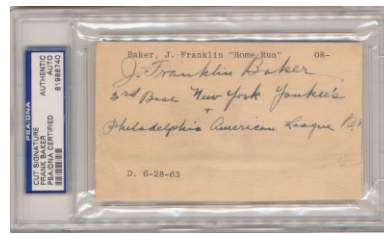 PSA/DNA
CUT SIGNATURE
FRANK BAKER
PSA/DNA CERTIFIED
AUTHENTIC
AUTO
81988740
Baker, J. Franklin "Home-Run" 08-
J. Franklin Baker
3rd Base New York Yankee's
+
Philadelphia American League
D. 6-28-63